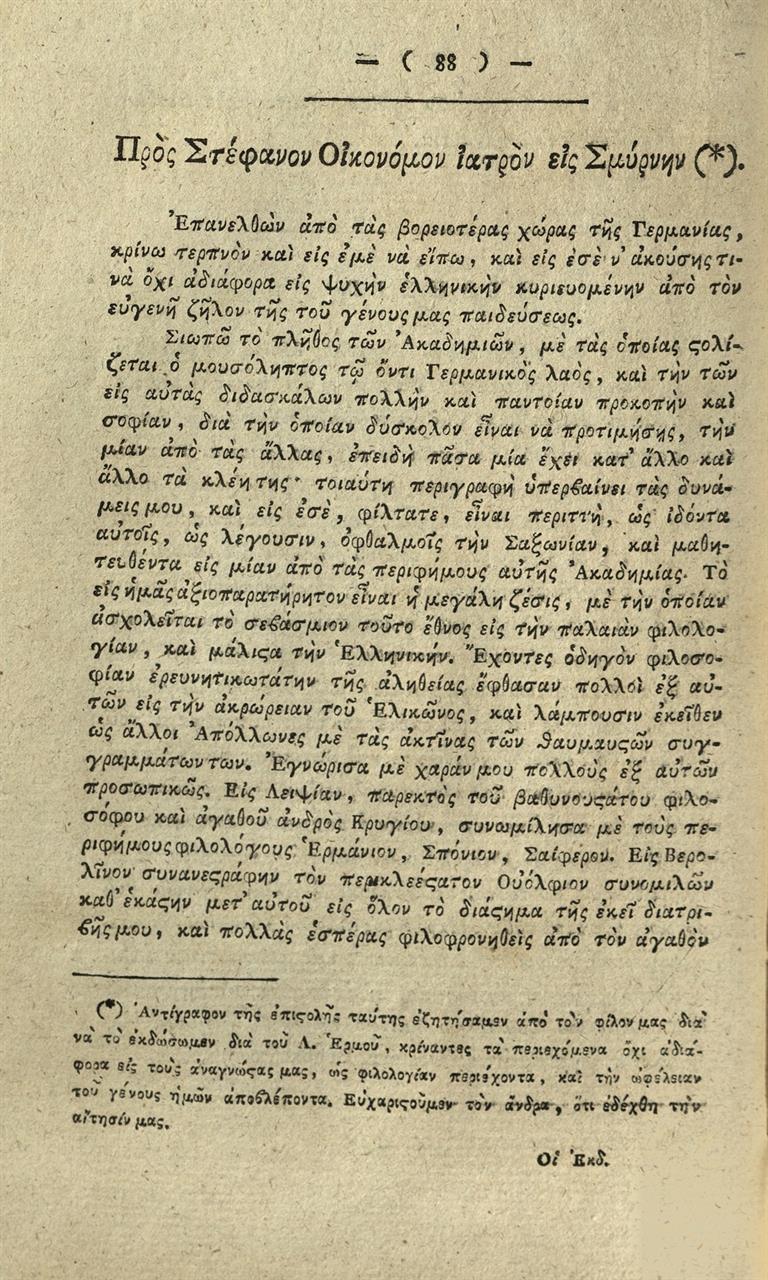 — ( 88 ) —
Πρὸς Στέφανον Οἰκονόμον ἰατρὸν εἰς Σμύρνην (*).
Ἐπανελθὼν ἀπὸ τὰς βορειοτέρας χώρας τῆς Γερμανίας,
κρίνω τερπνὸν καὶ εἰς ἐμὲ νὰ εἴπω, καὶ εἰς ἐσὲ ν' ἀκούσῃς τι-
νὰ ὄχι ἀδιάφορα εἰς ψυχὴν ἑλληνικὴν κυριευομένην ἀπὸ τὸν
εὐγενῆ ζῆλον τῆς τοῦ γένους μας παιδεύσεως.
Σιωπῶ τὸ πλῆθος τῶν Ἀκαδημιῶν, μὲ τὰς ὁποίας ϛολί-
ζεται ὁ μουσόληπτος τῷ ὄντι Γερμανικὸς λαὸς, καὶ τὴν τῶν
εἰς αὐτὰς διδασκάλων πολλὴν καὶ παντοίαν προκοπὴν καὶ
σοφίαν, διὰ τὴν ὁποίαν δύσκολον εἶναι νὰ προτιμήσῃς, τὴν
μίαν ἀπὸ τὰς ἄλλας, ἐπειδὴ πᾶσα μία ἔχει κατ' ἄλλο καὶ
ἄλλο τὰ κλέη της· τοιαύτη περιγραφὴ ὑπερβαίνει τὰς δυνά-
μεις μου, καὶ εἰς ἐσὲ, φίλτατε, εἶναι περιττὴ, ὡς ἰδόντα
αὐτοῖς, ὡς λέγουσιν, ὀφθαλμοῖς τὴν Σαξωνίαν, καὶ μαθη-
τευθέντα εἰς μίαν ἀπὸ τὰς περιφήμους αὐτῆς Ἀκαδημίας. Τὸ
εἰς ἡμᾶς ἀξιοπαρατήρητον εἶναι ἡ μεγάλη ζέσις, μὲ τὴν ὁποίαν
ἀσχολεῖται τὸ σεβάσμιον τοῦτο ἔθνος εἰς τὴν παλαιὰν φιλολο-
γίαν, καὶ μάλιϛα τὴν Ἑλληνικήν. Ἔχοντες ὁδηγὸν φιλοσο-
φίαν ἐρευνητικωτάτην τῆς ἀληθείας ἔφθασαν πολλοὶ ἐξ αὐ-
τῶν εἰς τὴν ἀκρώρειαν τοῦ Ἑλικῶνος, καὶ λάμπουσιν ἐκεῖθεν
ὡς ἄλλοι Ἀπόλλωνες μὲ τὰς ἀκτῖνας τῶν θαυμαϛῶν συγ-
γραμμάτων των. Ἐγνώρισα μὲ χαράν μου πολλοὺς ἐξ αὐτῶν
προσωπικῶς. Εἰς Λειψίαν, παρεκτὸς τοῦ βαθυνουϛάτου φιλο-
σόφου καὶ ἀγαθοῦ ἀνδρὸς Κρυγίου, συνωμίλησα μὲ τοὺς πε-
ριφήμους φιλολόγους Ἑρμάνιον, Σπόνιον, Σαίφερον. Εἰς Βερο-
λῖνον συνανεϛράφην τὸν περικλεέϛατον Οὐόλφιον συνομιλῶν
καθ' ἑκάϛην μετ' αὐτοῦ εἰς ὅλον τὸ διάϛημα τῆς ἐκεῖ διατρι-
βῆς μου, καὶ πολλὰς ἑσπέρας φιλοφρονηθεὶς ἀπὸ τὸν ἀγαθὸν
(*) Ἀντίγραφον τῆς ἐπιϛολῆς ταύτης ἐζητήσαμεν ἀπὸ τὸν φίλον μας διὰ
νὰ τὸ ἐκδώσωμεν διὰ τοῦ Λ. Ἑρμοῦ, κρίναντες τὰ περιεχόμενα ὄχι ἀδιά-
φορα εἰς τοὺς ἀναγνώϛας μας, ὡς φιλολογίαν περιέχοντα, καὶ τὴν ὠφέλειαν
τοῦ γένους ἡμῶν ἀποβλέποντα. Εὐχαριϛοῦμεν τὸν ἄνδρα, ὅτι ἐδέχθη τὴν
αἴτησίν μας.
Οἱ Ἐκδ.